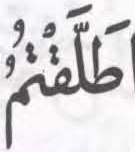 ا طَلَّقْتُمُ